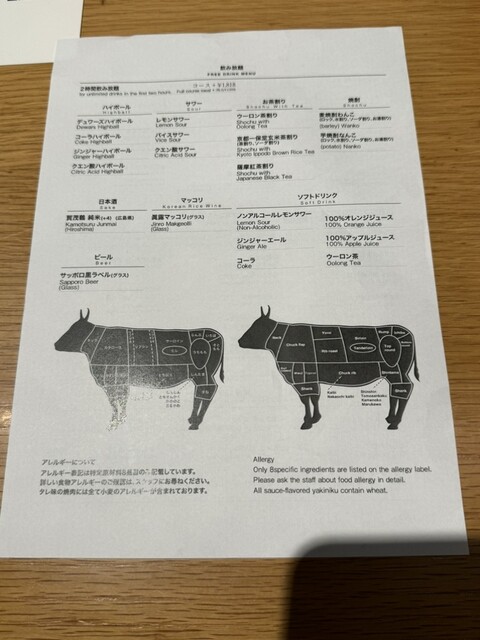 飲み放題
FREE DRINK MENU
2時間飲み放題
コース + ¥1,818
for unlimited drinks in the first two hours.
ハイボール
Highball
デュワーズハイボール
Dewars Highball
コーラハイボール
Coke Highball
ジンジャーハイボール
Ginger Highball
クエン酸ハイボール
Citric Acid Highball
サワー
Sour
レモンサワー
Lemon Sour
バイスサワー
Vice Sour
クエン酸サワー
Citric Acid Sour
お茶割り
Shochu With Tea
ウーロン茶割り
Shochu with
Oolong Tea
京都一保堂玄米茶割り
(茶割り、ソーダ割り)
Shochu with
Kyoto Ippodo Brown Rice Tea
薩摩紅茶割り
Shochu with
Japanese Black Tea
焼酎
Shochu
麦焼酎わんこ
(ロック、水割り、ソーダ割り、お湯割り)
(barley) Wanko
芋焼酎なんこ
(ロック、水割り、ソーダ割り、お湯割り)
(potato) Nanko
日本酒
Sake
賀茂鶴 純米(+4) (広島県)
Kamotsuru Junmai
(Hiroshima)
マッコリ
Korean Rice Wine
眞露マッコリ(グラス)
Jinro Makgeolli
(Glass)
ソフトドリンク
Soft Drink
ノンアルコールレモンサワー
Lemon Sour
(Non-Alcoholic)
ジンジャーエール
Ginger Ale
コーラ
Coke
100%オレンジジュース
100% Orange Juice
100%アップルジュース
100% Apple Juice
ウーロン茶
Oolong Tea
ビール
Beer
サッポロ黒ラベル(グラス)
Sapporo Beer
(Glass)
Neck
Chuck flap
Rib roast
Sirloin
Tenderloin
Rump
Top round
Chuck rib
Shank
Shank
Kainomi
アレルギーについて
アレルギー表記は特定原材料8品目のみ記載しています。
詳しい食物アレルギーのご確認は、スタッフにお尋ねください。
タレ味の焼肉には全て小麦のアレルギーが含まれております。
Allergy
Only 8specific ingredients are listed on the allergy label.
Please ask the staff about food allergy in detail.
All sauce-flavored yakiniku contain wheat.